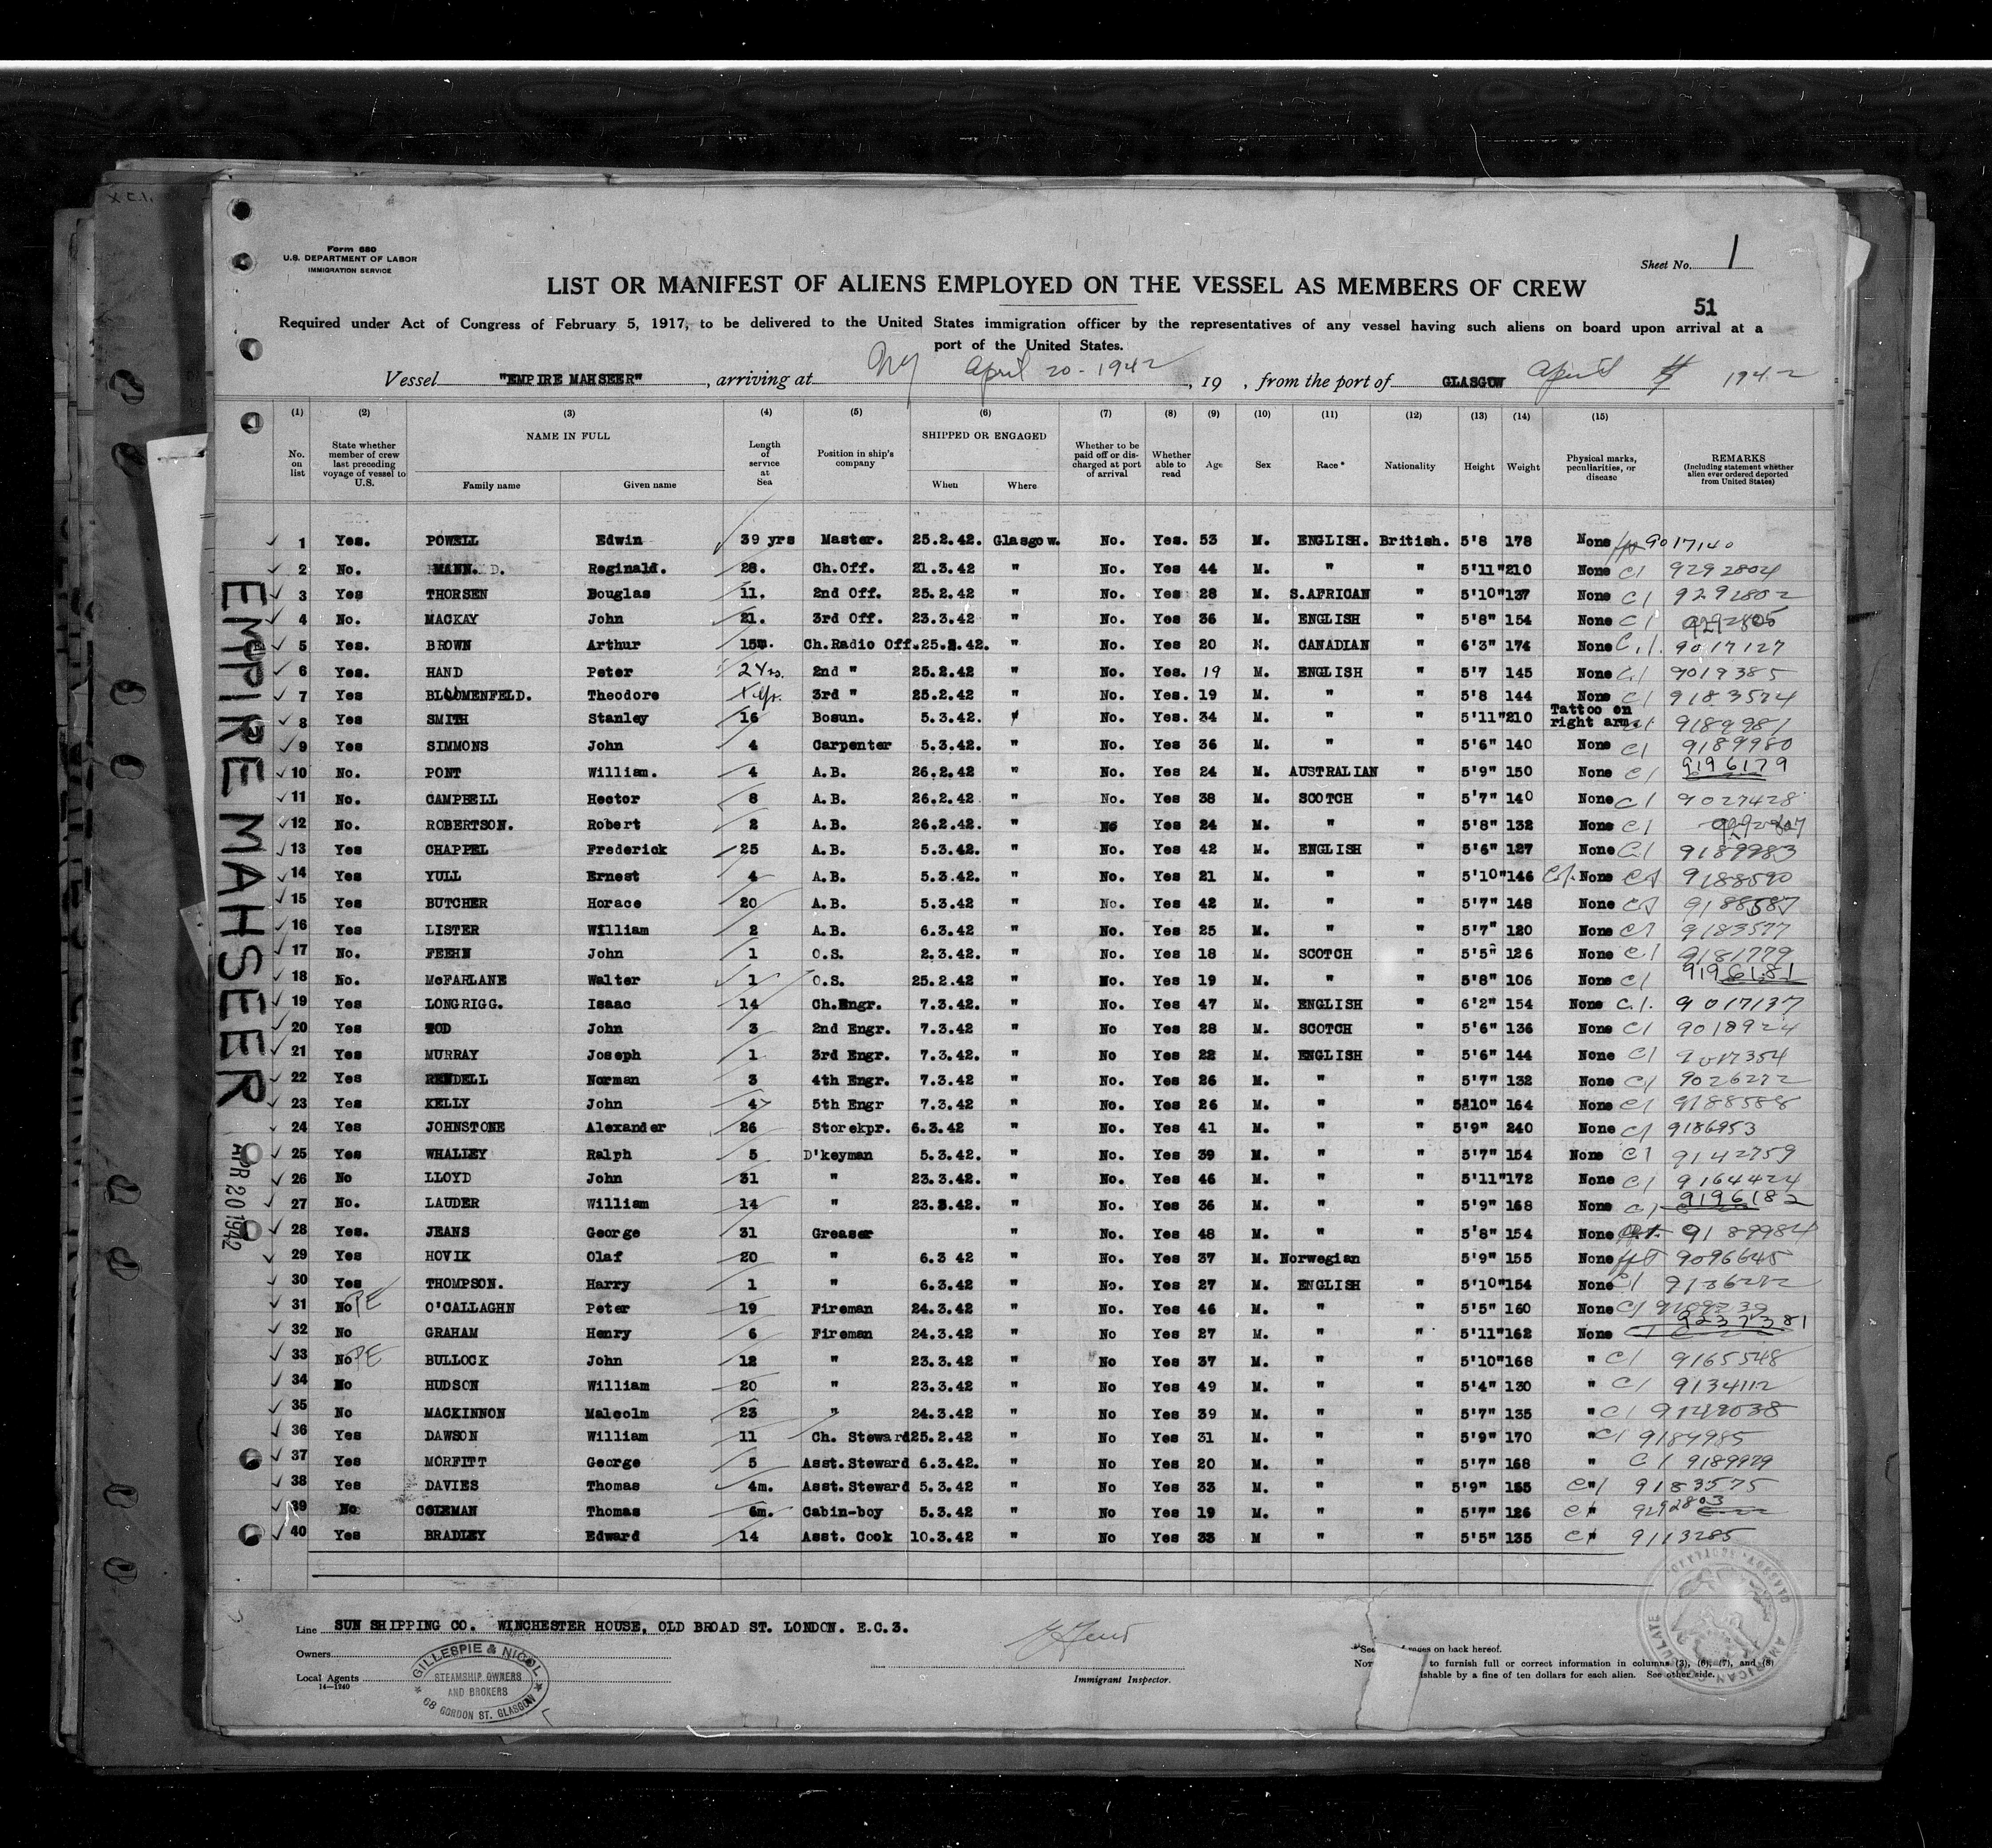 Form 680
U.S. DEPARTMENT OF LABOR
IMMIGRATION SERVICE
Sheet No. 1
LIST OR MANIFEST OF ALIENS EMPLOYED ON THE VESSEL AS MEMBERS OF CREW
51
Required under Act of Congress of February 5, 1917, to be delivered to the United States immigration officer by the representatives of any vessel having such aliens on board upon arrival at a
port of the United States.
Vessel "EMPIRE MAHSEER", arriving at NY April 20-1942, 19 , from the port of GLASGOW April 1942
(1) (2) (3) (4) (5) (6) (7) (8) (9) (10) (11) (12) (13) (14) (15)
No. on list
State whether member of crew last preceding voyage of vessel to U.S.
NAME IN FULL
Family name Given name
Length of service at Sea
Position in ship's company
SHIPPED OR ENGAGED
When Where
Whether to be paid off or discharged at port of arrival
Whether able to read
Age Sex Race* Nationality Height Weight
Physical marks, peculiarities, or disease
REMARKS
(Including statement whether alien ever ordered deported from United States)
1 Yes. POWELL Edwin 39 yrs Master. 25.2.42. Glasgow. No. Yes. 53 M. ENGLISH. British. 5'8 178 None 9017140
2 No. MANN. Reginald. 28. Ch.Off. 21.3.42 " No. Yes 44 M. " " 5'11" 210 None C1 9292804
3 Yes THORSEN Douglas 11. 2nd Off. 25.2.42 " No. Yes 28 M. S.AFRICAN " 5'10" 137 None C1 9292802
4 No. MACKAY John 21. 3rd Off. 23.3.42 " No. Yes 36 M. ENGLISH " 5'8" 154 None C1 9292805
5 Yes. BROWN Arthur 15m. Ch.Radio Off. 25.2.42. " No. Yes 20 M. CANADIAN " 6'3" 174 None C.1. 9017127
6 Yes. HAND Peter 2 Yrs. 2nd " 25.2.42 " No. Yes. 19 M. ENGLISH " 5'7 145 None C1 9019385
7 Yes BLOOMENFELD. Theodore 1 yr. 3rd " 25.2.42 " No. Yes. 19 M. " " 5'8 144 None C1 9183574
8 Yes SMITH Stanley 16 Bosun. 5.3.42. " No. Yes. 34 M. " " 5'11" 210 Tattoo on right arm. C1 9189981
9 Yes SIMMONS John 4 Carpenter 5.3.42. " No. Yes 36 M. " " 5'6" 140 None C1 9189980
10 No. PONT William. 4 A.B. 26.2.42 " No. Yes 24 M. AUSTRALIAN " 5'9" 150 None C1 9196179
11 No. CAMPBELL Hector 8 A.B. 26.2.42 " No. Yes 38 M. SCOTCH " 5'7" 140 None C1 9027428
12 No. ROBERTSON. Robert 2 A.B. 26.2.42. " No Yes 24 M. " " 5'8" 132 None C1
13 Yes CHAPPEL Frederick 25 A.B. 5.3.42. " No. Yes 42 M. ENGLISH " 5'6" 127 None C.1 9189983
14 Yes YULL Ernest 4 A.B. 5.3.42. " No. Yes 21 M. " " 5'10" 146 None C1 9188590
15 Yes BUTCHER Horace 20 A.B. 5.3.42 " No. Yes 42 M. " " 5'7" 148 None C1 9188587
16 Yes LISTER William 2 A.B. 6.3.42 " No. Yes 25 M. " " 5'7" 120 None C1 9183577
17 No. FEEHN John 1 O.S. 2.3.42. " No. Yes 18 M. SCOTCH " 5'5" 126 None C1 9181779
18 No. McFARLANE Walter 1 O.S. 25.2.42 " No. Yes 19 M. " " 5'8" 106 None C1 9196181
19 Yes LONGRIGG. Isaac 14 Ch.Engr. 7.3.42 " No. Yes 47 M. ENGLISH " 6'2" 154 None C.1. 9017137
20 Yes TOD John 3 2nd Engr. 7.3.42 " No Yes 28 M. SCOTCH " 5'6" 136 None C1 9018924
21 Yes MURRAY Joseph 1 3rd Engr. 7.3.42. " No Yes 22 M. ENGLISH " 5'6" 144 None C1 9017354
22 Yes RENDELL Norman 3 4th Engr. 7.3.42 " No. Yes 26 M. " " 5'7" 132 None C1 9026272
23 Yes KELLY John 4 5th Engr 7.3.42 " No. Yes 26 M. " " 5'10" 164 None C1 9188588
24 Yes JOHNSTONE Alexander 26 Storekpr. 6.3.42 " No. Yes 41 M. " " 5'9" 240 None C1 9186953
25 Yes WHALLEY Ralph 5 D'keyman 5.3.42. " No. Yes 39 M. " " 5'7" 154 None C1 9142759
26 No LLOYD John 31 " 23.3.42. " No. Yes 46 M. " " 5'11" 172 None C1 9164424
27 No. LAUDER William 14 " 23.3.42. " No. Yes 36 M. " " 5'9" 168 None C1 9196182
28 Yes. JEANS George 31 Greaser " No. Yes 48 M. " " 5'8" 154 None 9189984
29 Yes HOVIK Olaf 20 " 6.3 42 " No. Yes 37 M. Norwegian 5'9" 155 None 9096645
30 Yes THOMPSON. Harry 1 " 6.3.42 " No. Yes 27 M. ENGLISH " 5'10" 154 None C1 9136212
31 No PE O'CALLAGHN Peter 19 Fireman 24.3.42 " No. Yes 46 M. " " 5'5" 160 None C1
32 No GRAHAM Henry 6 Fireman 24.3.42 " No Yes 27 M. " " 5'11" 162 None 9237381
33 No PE BULLOCK John 12 " 23.3.42 " No Yes 37 M. " " 5'10" 168 " C1 9165548
34 No HUDSON William 20 " 23.3.42 " No Yes 49 M. " " 5'4" 130 " C1 9134112
35 No MACKINNON Malcolm 23 " 24.3.42 " No Yes 39 M. " " 5'7" 135 " C1 9149038
36 Yes DAWSON William 11 Ch. Steward 25.2.42 " No Yes 31 M. " " 5'9" 170 " C1 9189985
37 Yes MORFITT George 5 Asst.Steward 6.3.42. " No Yes 20 M. " " 5'7" 168 " C1 9189979
38 Yes DAVIES Thomas 4m. Asst.Steward 5.3.42 " No Yes 33 M. " " 5'9" 155 " C1 9183575
39 No COLEMAN Thomas 6m. Cabin-boy 5.3.42 " No Yes 19 M. " " 5'7" 126 " C1 9292803
40 Yes BRADLEY Edward 14 Asst. Cook 10.3.42 " No Yes 33 M " " 5'5" 135 " C1 9113285
EMPIRE MAHSEER
APR 20 1942
Line SUN SHIPPING CO. WINCHESTER HOUSE, OLD BROAD ST. LONDON. E.C.3.
Owners
Local Agents
14-1240
GILLESPIE & NICOL
STEAMSHIP OWNERS
AND BROKERS
68 GORDON ST. GLASGOW
Immigrant Inspector.
on back hereof.
to furnish full or correct information in columns (3), (6), (7), and (8)
ishable by a fine of ten dollars for each alien. See other side.